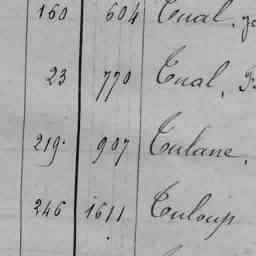 160 604 Tual,
23 770 Tual,
219. 907 Tulane,
246 1611 Tuloup